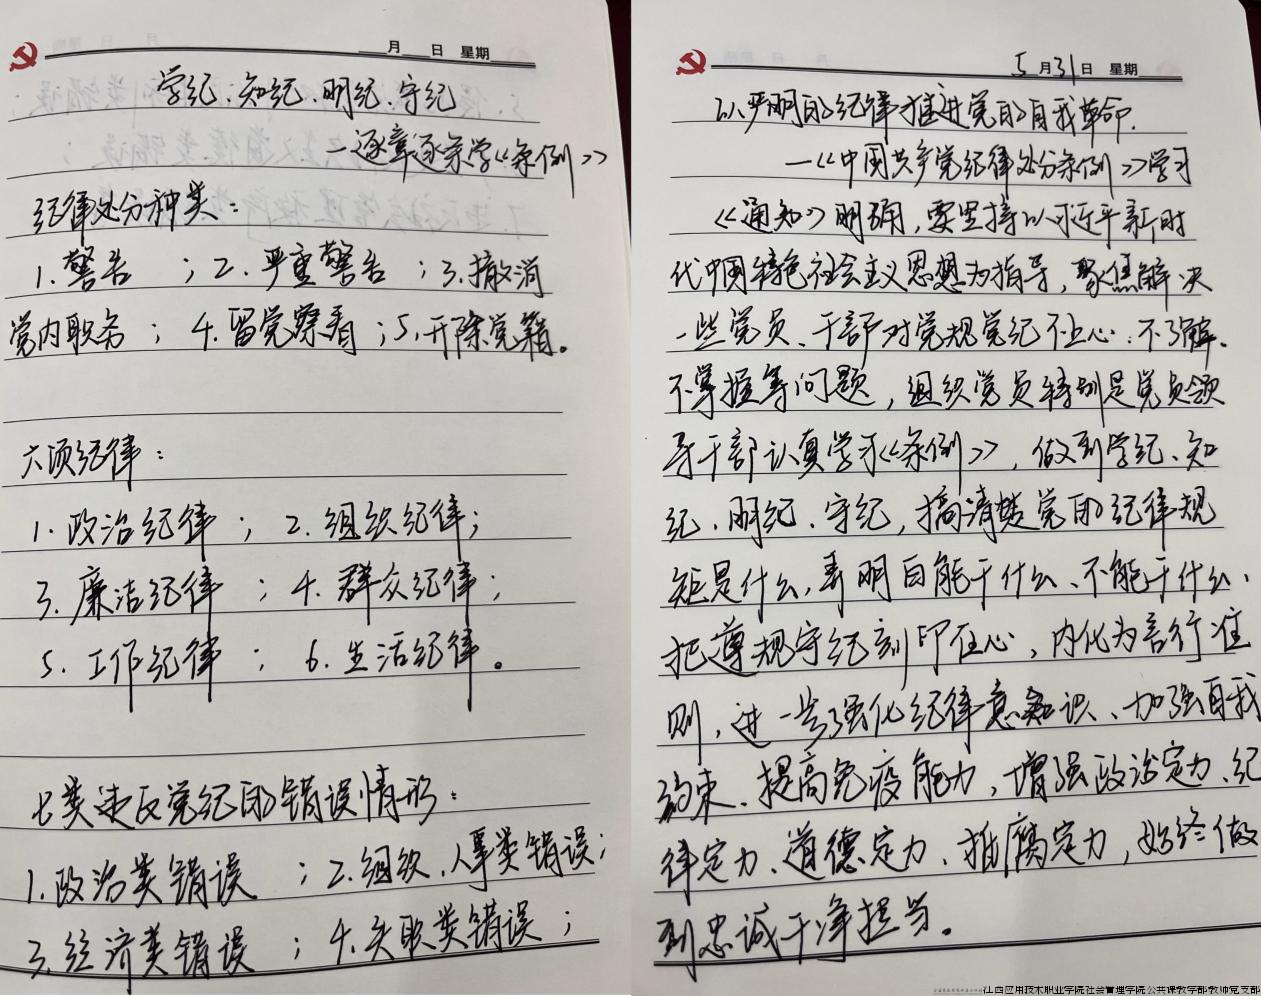 月 日 星期
学纪、知纪、明纪、守纪
—逐章逐条学《条例》
纪律处分种类：
1.警告 ；2.严重警告 ；3.撤消
党内职务 ；4.留党察看 ；5.开除党籍。
六项纪律：
1.政治纪律 ；2.组织纪律；
3.廉洁纪律 ；4.群众纪律；
5.工作纪律 ；6.生活纪律。
七类违反党纪的错误情形：
1.政治类错误 ；2.组织、人事类错误；
3.经济类错误 ；4.失职类错误；
5月31日 星期
以严明的纪律推进党的自我革命.
—《中国共产党纪律处分条例》学习
《通知》明确，要坚持以习近平新时
代中国特色社会主义思想为指导，聚焦解决
一些党员、干部对党规党纪不上心、不了解、
不掌握等问题，组织党员特别是党员领
导干部认真学习《条例》，做到学纪、知
纪、明纪、守纪，搞清楚党的纪律规
矩是什么，弄明白能干什么、不能干什么，
把遵规守纪刻印在心，内化为言行准
则，进一步强化纪律意识、加强自我
约束、提高免疫能力，增强政治定力、纪
律定力、道德定力、拒腐定力，始终做
到忠诚干净担当。
江西应用技术职业学院社会管理学院公共课教学部教师党支部